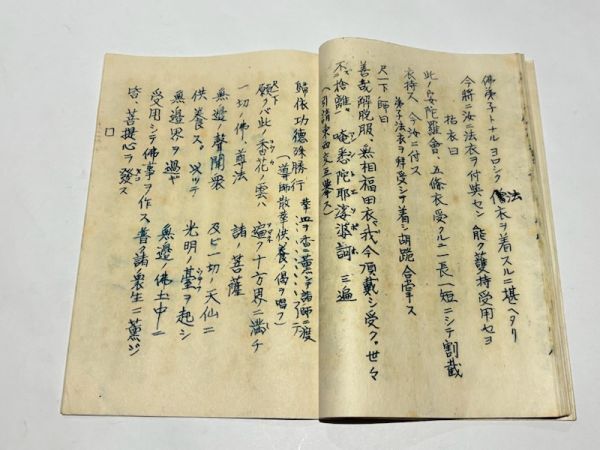 佛弟子トナル ヨロシク法衣ヲ着スルニ堪ヘタリ
今將ニ汝ニ法衣ヲ付與セン 能ク護持受用セヨ
拈衣曰
此ノ安陀羅會、五條衣受クルニ一長一短ニシテ割截
衣持ス 今汝ニ付ス
弟子法衣ヲ拜受シテ着シ胡跪合掌ス
尺一下師曰
善哉解脱服 無相福田衣 我今頂戴シ受ク 世々
不捨離 唵悉陀耶娑波訶 三遍
(引請東西交三拳ス)
歸依功德殊勝行 華皿ヲ香ニ薫ジ諸師ニ渡
(導師散華供養ノ偈ヲ唱フ)
尺下
願クバ此ノ香花ノ雲ハ 遍ク十方界ニ滿チ
一切ノ佛、尊法 諸ノ菩薩
無邊ノ聲聞衆 及ビ一切ノ天仙ニ
供養ス。以ッテ 光明ノ臺ヲ起シ
無邊界ヲ過ギ 無邊佛土中ニ
受用シテ佛事ヲ作ス 普ク諸衆生ニ薫ジ
皆、菩提心ヲ發ス